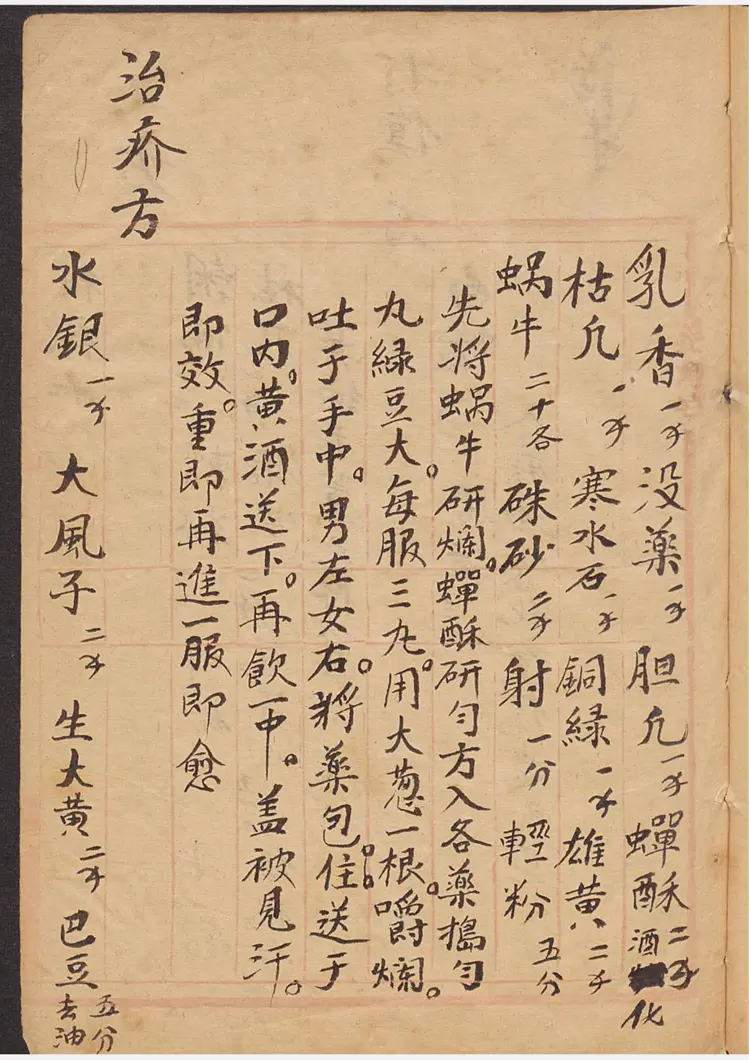 乳香一錢 没藥一錢 胆凡一錢 蟬酥二錢酒化
枯凡一錢 寒水石一錢 銅緑一錢 雄黄二錢
蜗牛二十各 硃砂二錢 射一分 輕粉五分
先将蜗牛研爛。蟬酥研匀方入各藥搗匀
丸緑豆大。每服三丸。用大葱一根。嚼爛。
吐于手中。男左女右。将藥包住。送于
口内。黄酒送下。再飲一中。盖被見汗。
即效。重即再進一服即愈
治疥方
水銀一錢 大風子二錢 生大黄二錢 巴豆五分去油